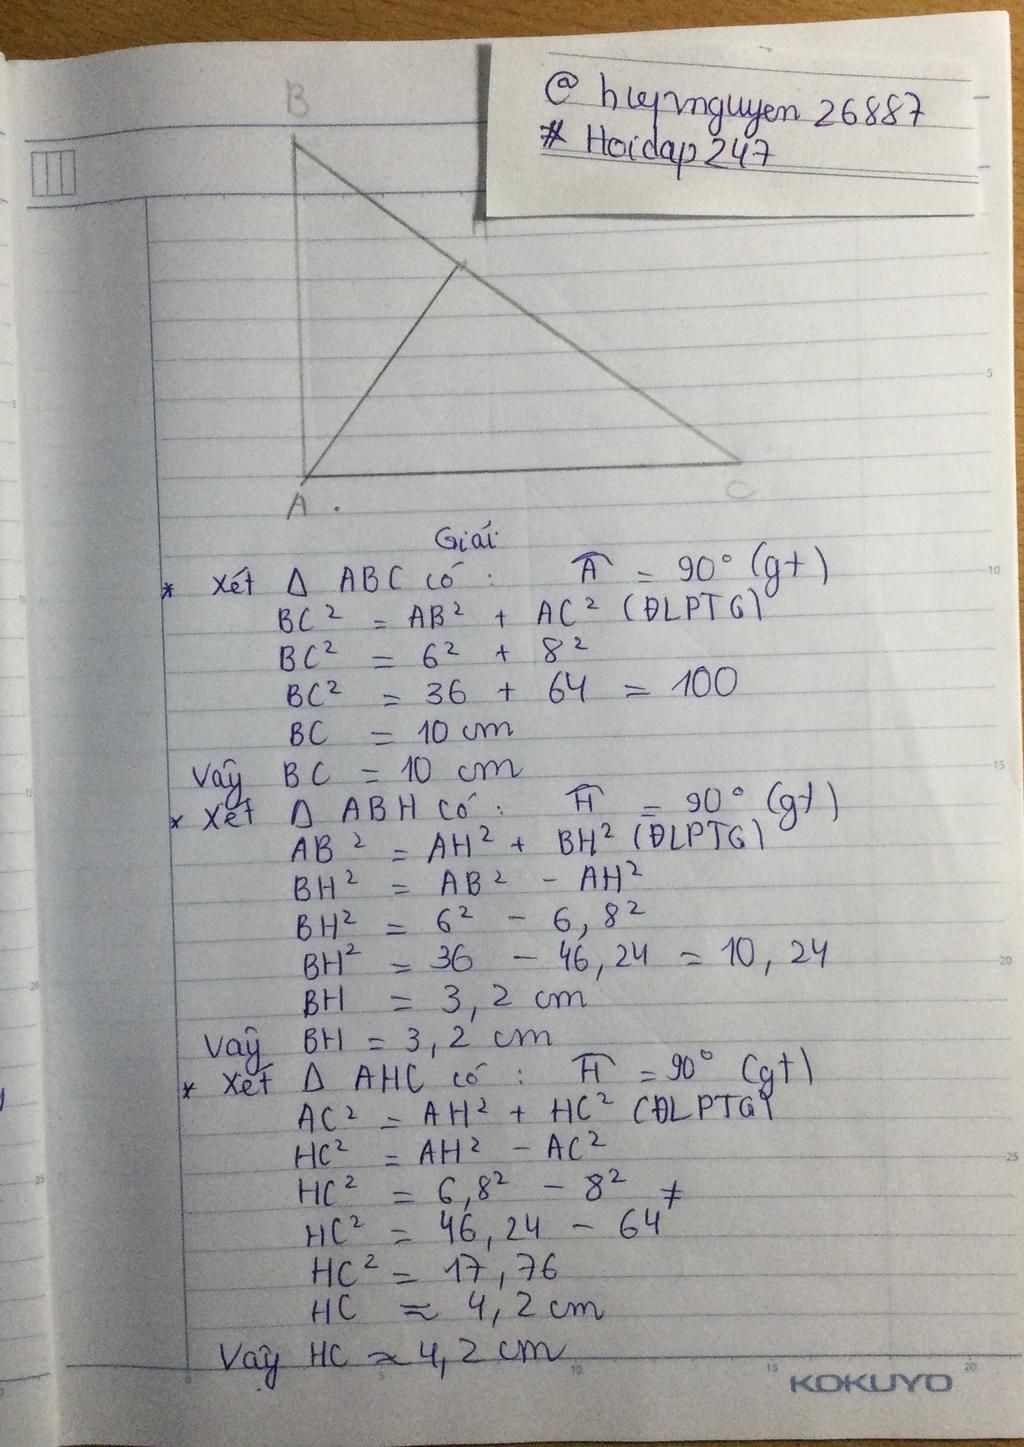 @ huynguyen 26887
# Hoidap247
B
A
C
Giải
* Xét Δ ABC có : Â = 90° (gt)
BC² = AB² + AC² (ĐLPTG)
BC² = 6² + 8²
BC² = 36 + 64 = 100
BC = 10 cm
Vậy BC = 10 cm
* Xét Δ ABH có : Ĥ = 90° (gt)
AB² = AH² + BH² (ĐLPTG)
BH² = AB² - AH²
BH² = 6² - 6,8²
BH² = 36 - 46,24 = 10,24
BH = 3,2 cm
Vậy BH = 3,2 cm
* Xét Δ AHC có : Ĥ = 90° (gt)
AC² = AH² + HC² (ĐLPTG)
HC² = AH² - AC²
HC² = 6,8² - 8²
HC² = 46,24 - 64
HC² = 17,76
HC ≈ 4,2 cm
Vậy HC ≈ 4,2 cm
5
10
15
20
25
0
5
10
15
20
KOKUYO